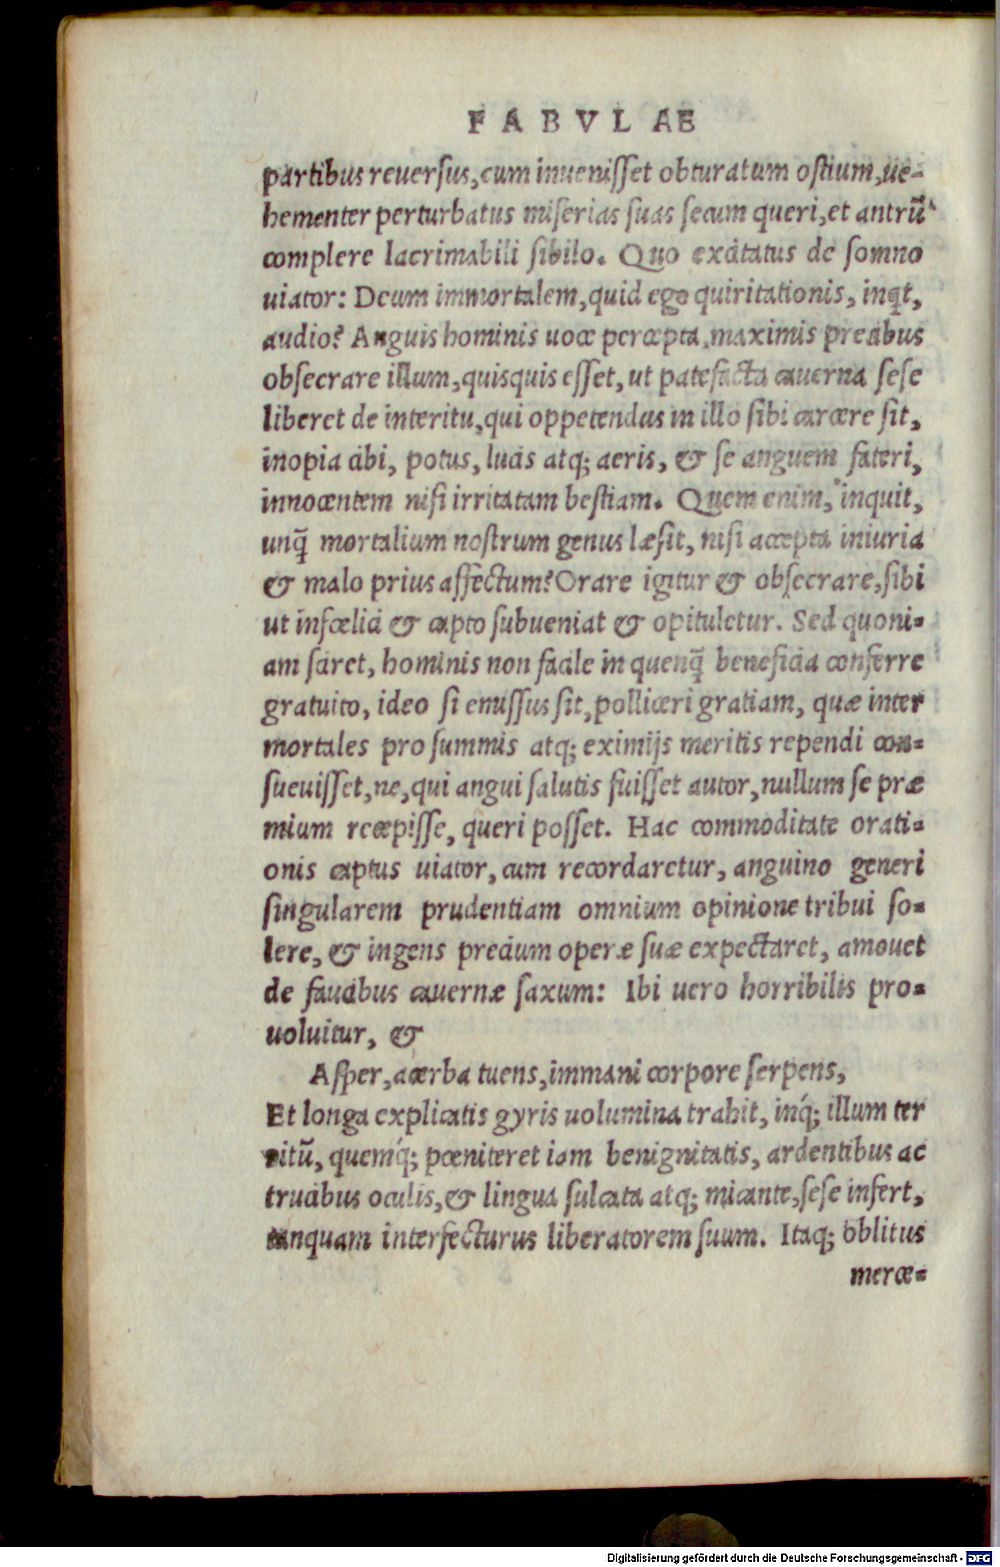 FABVLAE
partibus reuersus, cum inuenisset obturatum ostium, ue-
hementer perturbatus miserias suas secum queri, et antrũ
complere lacrimabili sibilo. Quo excitatus de somno
uiator: Deum immortalem, quid ego quiritationis, inqt,
audio? Anguis hominis uoce percepta, maximis precibus
obsecrare illum, quisquis esset, ut patefacta cauerna sese
liberet de interitu, qui oppetendus in illo sibi carcere sit,
inopia cibi, potus, lucis atq; aeris, & se anguem fateri,
innocentem nisi irritatam bestiam. Quem enim, inquit,
unq̃ mortalium nostrum genus læsit, nisi accepta iniuria
& malo prius affectum? Orare igitur & obsecrare, sibi
ut infœlici & capto subueniat & opituletur. Sed quoni-
am sciret, hominis non facile in quenq̃ beneficia conferre
gratuito, ideo si emissus sit, polliceri gratiam, quæ inter
mortales pro summis atq; eximijs meritis rependi con-
sueuisset, ne, qui angui salutis fuisset autor, nullum se præ
mium recepisse, queri posset. Hac commoditate orati-
onis captus uiator, cum recordaretur, anguino generi
singularem prudentiam omnium opinione tribui so-
lere, & ingens precium operæ suæ expectaret, amouet
de faucibus cauernæ saxum: Ibi uero horribilis pro-
uoluitur, &
Asper, acerba tuens, immani corpore serpens,
Et longa explicatis gyris uolumina trahit, inq́; illum ter
ritũ, quemq́; pœniteret iam benignitatis, ardentibus ac
trucibus oculis, & lingua sulcata atq; micante, sese infert,
tanquam interfecturus liberatorem suum. Itaq; oblitus
merce-
Digitalisierung gefördert durch die Deutsche Forschungsgemeinschaft - DFG